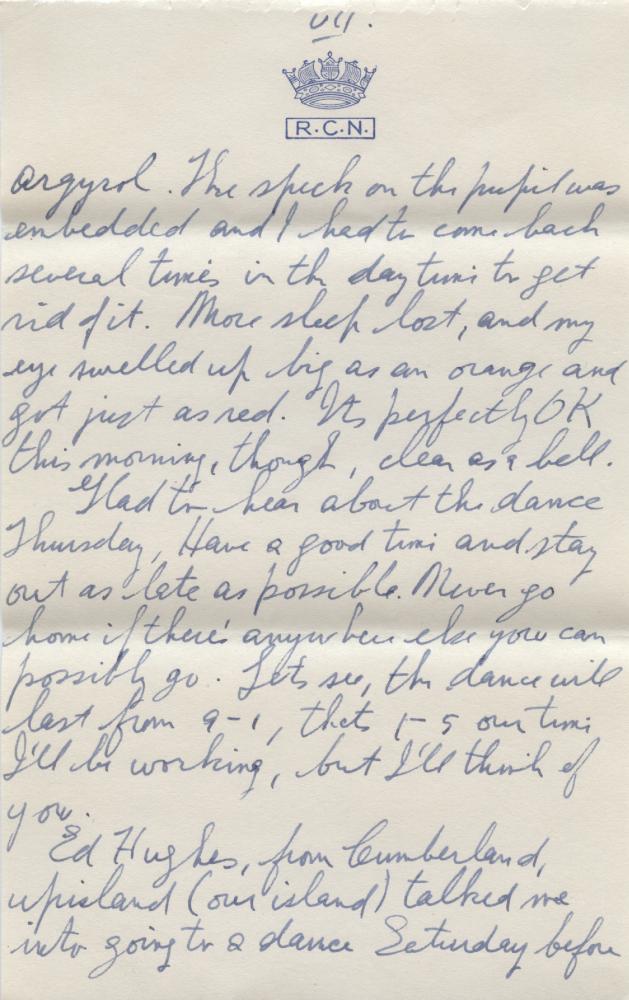 VII.
R.C.N.
argyrol. The speck on the pupil was
embedded and I had to come back
several times in the daytime to get
rid of it. More sleep lost, and my
eye swelled up big as an orange and
got just as red. Its perfectly OK
this morning, though, clear as a bell.
Glad to hear about the dance
Thursday, Have a good time and stay
out as late as possible. Never go
home if there's anywhere else you can
possibly go. Lets see, the dance will
last from 9-1, thats 1-5 our time
I'll be working, but I'll think of
you.
Ed Hughes, from Cumberland,
upisland (our island) talked me
into going to a dance Saturday before